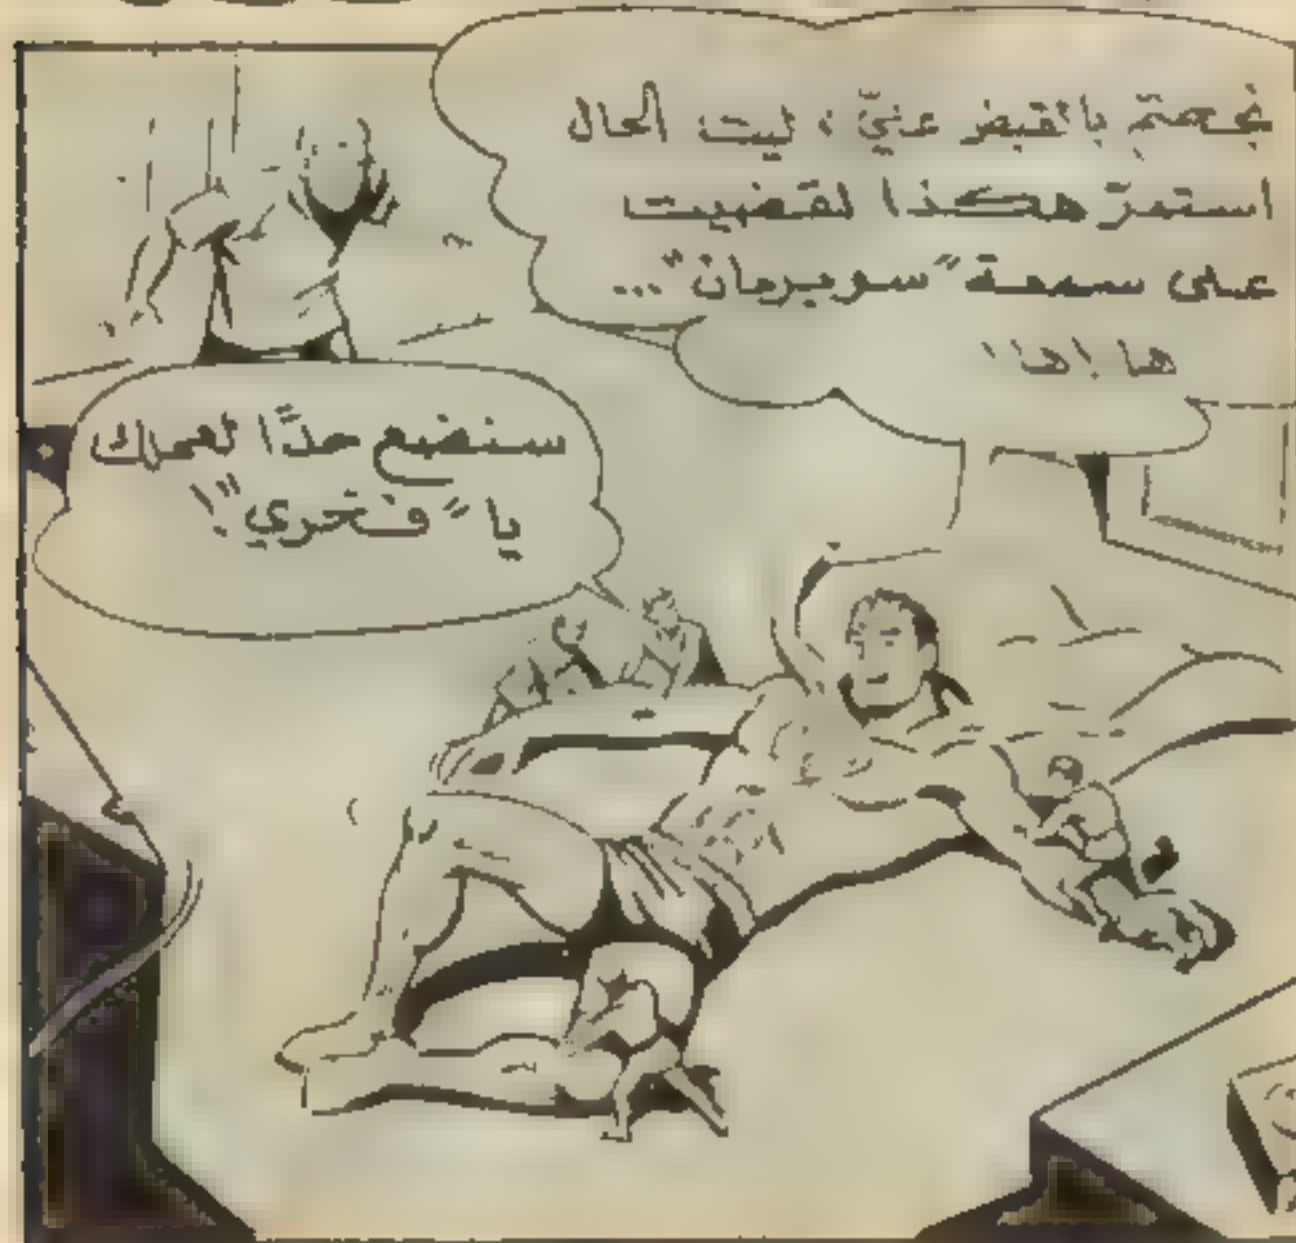 نجحتم بالقبض عليّ، ليت الحال
استمرّ هكذا لقضيت
على سمعة "سوبرمان"...
ها! ها!
سنضع حدًّا لعملك
يا "فخري"!